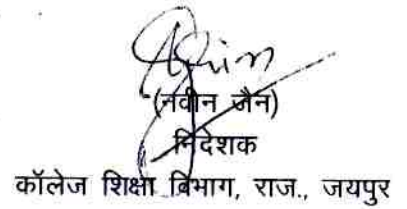 (नवीन जैन)
निदेशक
कॉलेज शिक्षा विभाग, राज., जयपुर